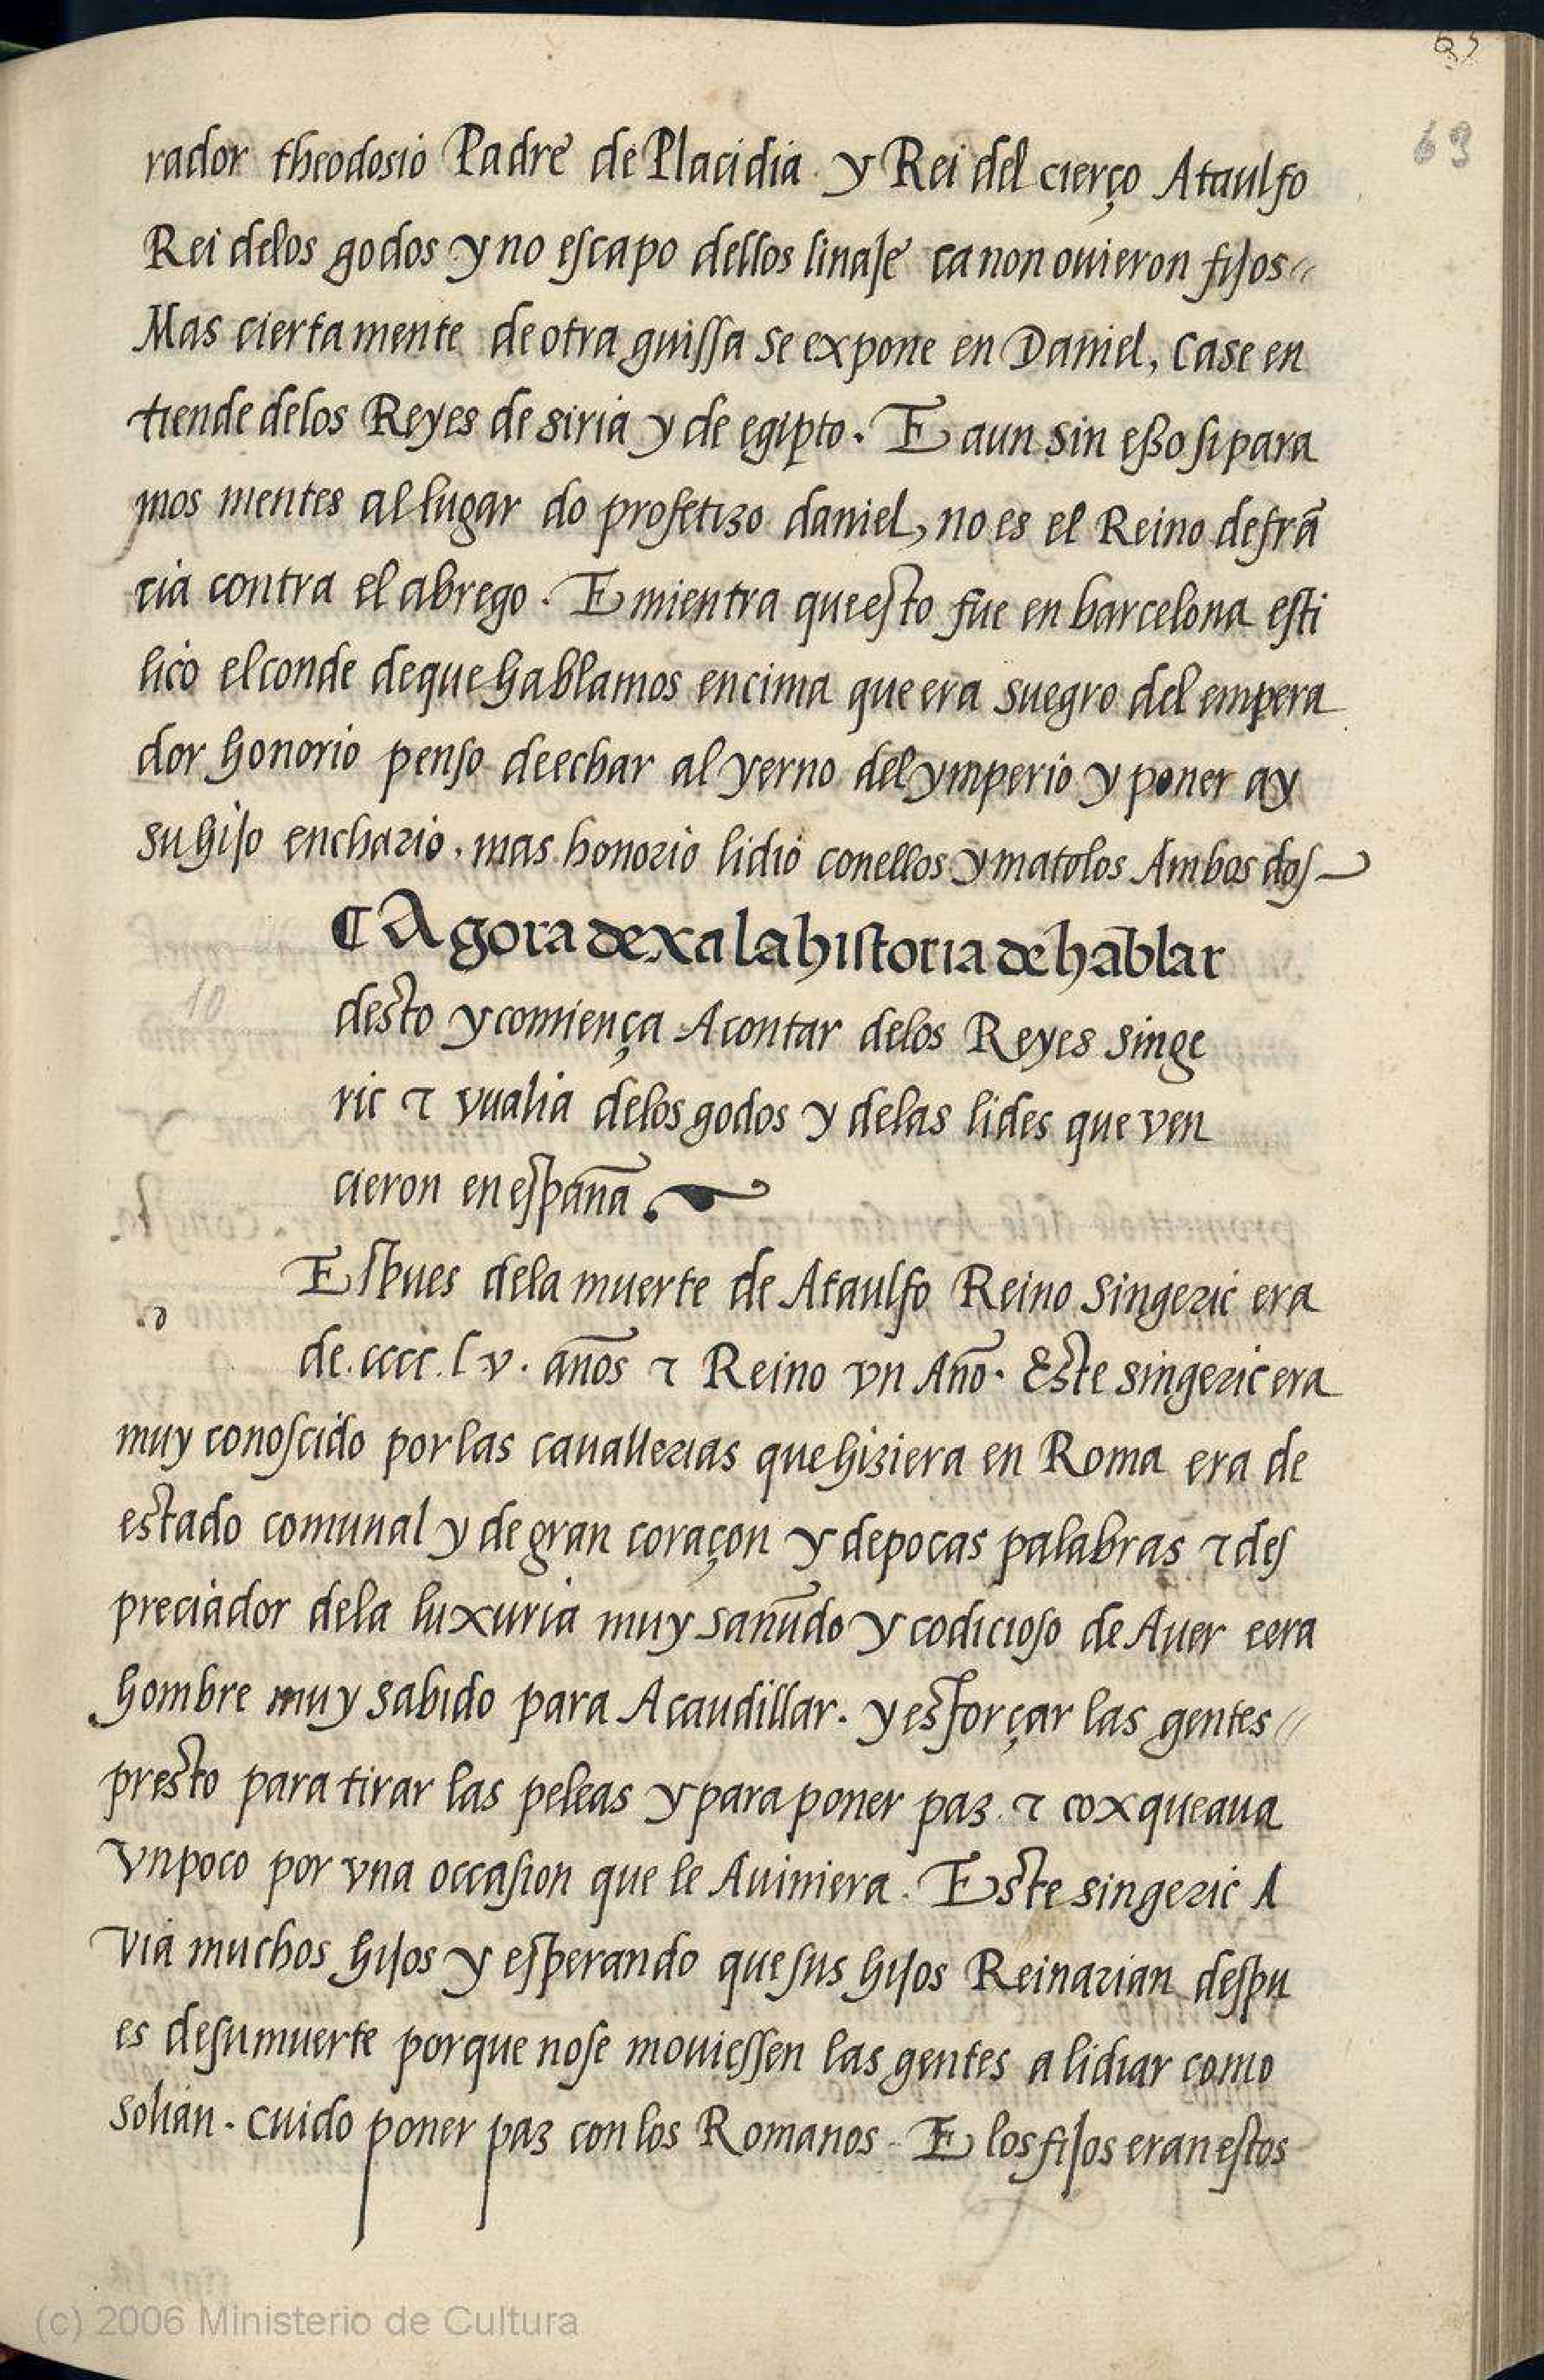 63
69
rador theodosio Padre de Placidia y Rei del cierço Ataulfo
Rei delos godos y no escapo dellos linaje ca non ouieron fijos
Mas ciertamente de otra guissa se expone en Daniel, Case en
tiende delos Reyes de siria y de egipto. E aun sin esso si para
mos mentes al lugar do profetizo daniel, no es el Reino defrã
cia contra el abrego. E mientra que esto fue en barcelona esti
lico el conde deque hablamos encima que era suegro del empera
dor honorio penso de echar al yerno del ymperio y poner ay
su hijo enchario. mas honorio lidio conellos y matolos Ambos dos
¶ Agora dexa la historia de hablar
10
desto y comiença Acontar delos Reyes singe
ric ⁊ vualia delos godos y delas lides que ven
cieron en españa
Espues dela muerte de Ataulfo Reino Singeric era
d
de. cccc. l v. años ⁊ Reino vn Año. Este singeric era
muy conoscido por las cauallerias que hiziera en Roma era de
estado comunal y de gran coraçon y de pocas palabras ⁊ des
preciador dela luxuria muy sañudo y codicioso de Auer e era
hombre muy sabido para Acaudillar. y esforçar las gentes
presto para tirar las peleas y para poner paz ⁊ coxqueaua
Vn poco por vna occasion que le Auiniera. Este singeric A
via muchos hijos y esperando que sus hijos Reinarian despu
es de su muerte porque no se mouiessen las gentes a lidiar como
solian. cuido poner paz con los Romanos. E los fijos eran estos
(c) 2006 Ministerio de Cultura